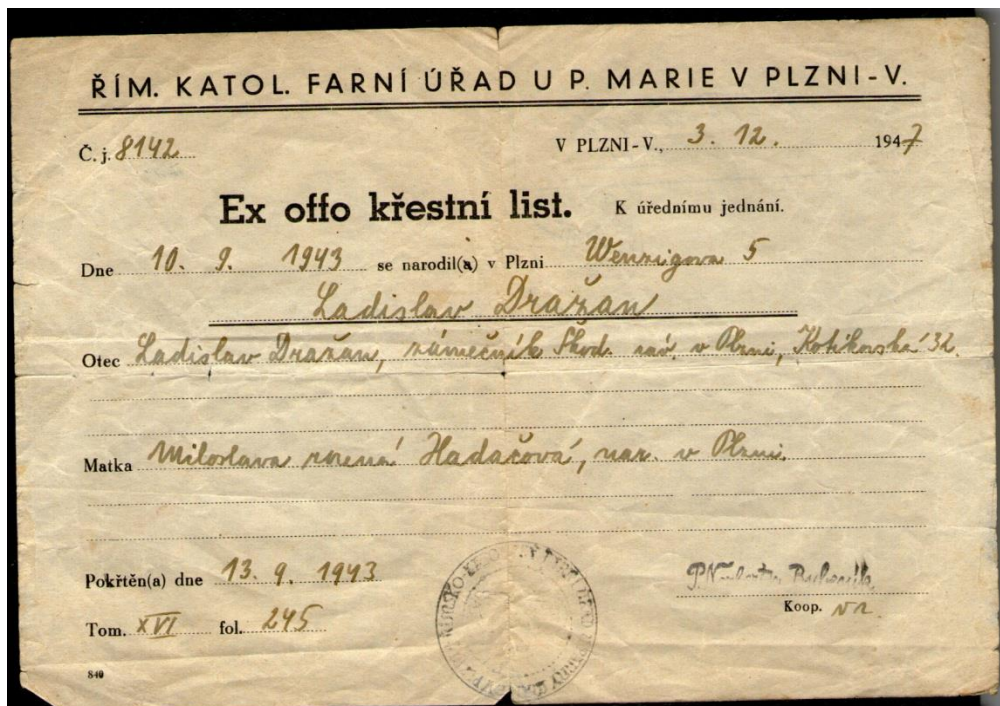 ŘÍM. KATOL. FARNÍ ÚŘAD U P. MARIE V PLZNI-V.
Č. j. 8142 V PLZNI-V., 3. 12. 1947
Ex offo křestní list. K úřednímu jednání.
Dne 10. 9. 1943 se narodil(a) v Plzni Wenzigova 5
Ladislav Dražan
Otec Ladislav Dražan, zámečník Škod. záv. v Plzni, Kotikovská 32.
Matka Miloslava rozená Hadačová, nar. v Plzni.
Pokřtěn(a) dne 13. 9. 1943
Koop.
Tom. XVI fol. 245
840